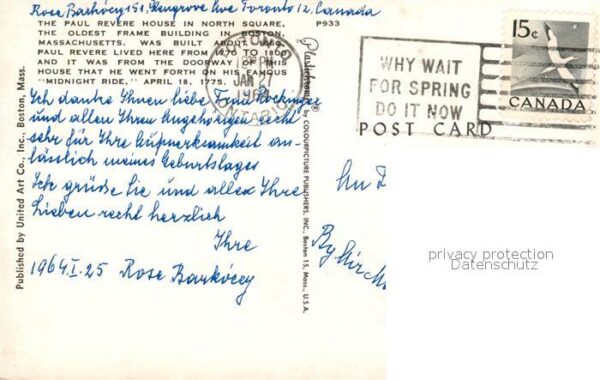 Rose Barkóczy 191, Hungrove Ave Toronto 12. Canada
THE PAUL REVERE HOUSE IN NORTH SQUARE,
THE OLDEST FRAME BUILDING IN BOSTON,
MASSACHUSETTS, WAS BUILT ABOUT
PAUL REVERE LIVED HERE FROM 1770 TO 1800
AND IT WAS FROM THE DOORWAY OF THIS
HOUSE THAT HE WENT FORTH ON HIS FAMOUS
"MIDNIGHT RIDE," APRIL 18, 1775.
P933
Ich danke Ihnen liebe Frau
und allen Ihren Angehörigen recht
sehr für Ihre Aufmerksamkeit an-
lässlich meines Geburtstages
Ich grüsse Sie und allen Ihre
Lieben recht herzlich
Ihre
1964.I.25 Rose Barkóczy
Published by United Art Co., Inc., Boston, Mass.
Plastichrome® by COLOURPICTURE PUBLISHERS, INC., Boston 15, Mass., U.S.A.
TORONTO
PM
JAN 27
1964
ONTARIO
WHY WAIT
FOR SPRING
DO IT NOW
15¢
CANADA
POST CARD
An
privacy protection
Datenschutz